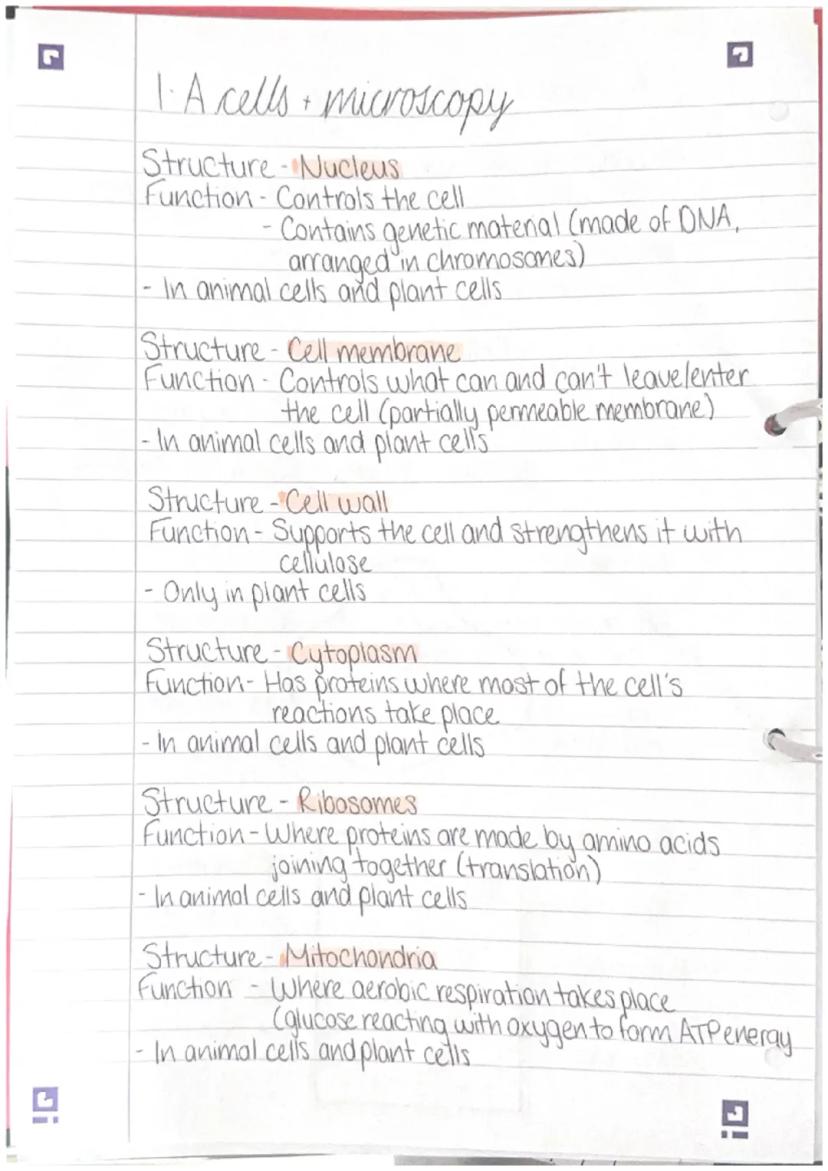 1.A cells + microscopy
Structure - Nucleus
Function - Controls the cell
- Contains genetic material (made of DNA,
arranged in chromosones)
- In animal cells and plant cells
Structure - Cell membrane
Function - Controls what can and can't leave/enter
the cell (partially permeable membrane)
- In animal cells and plant cells
Structure - Cell wall
Function - Supports the cell and strengthens it with
cellulose
- Only in plant cells
Structure - Cytoplasm
Function - Has proteins where most of the cell's
reactions take place
- In animal cells and plant cells
Structure - Ribosomes
Function - Where proteins are made by amino acids
joining together (translation)
- In animal cells and plant cells
Structure - Mitochondria
Function - Where aerobic respiration takes place
(glucose reacting with oxygen to form ATP energy
- In animal cells and plant cells